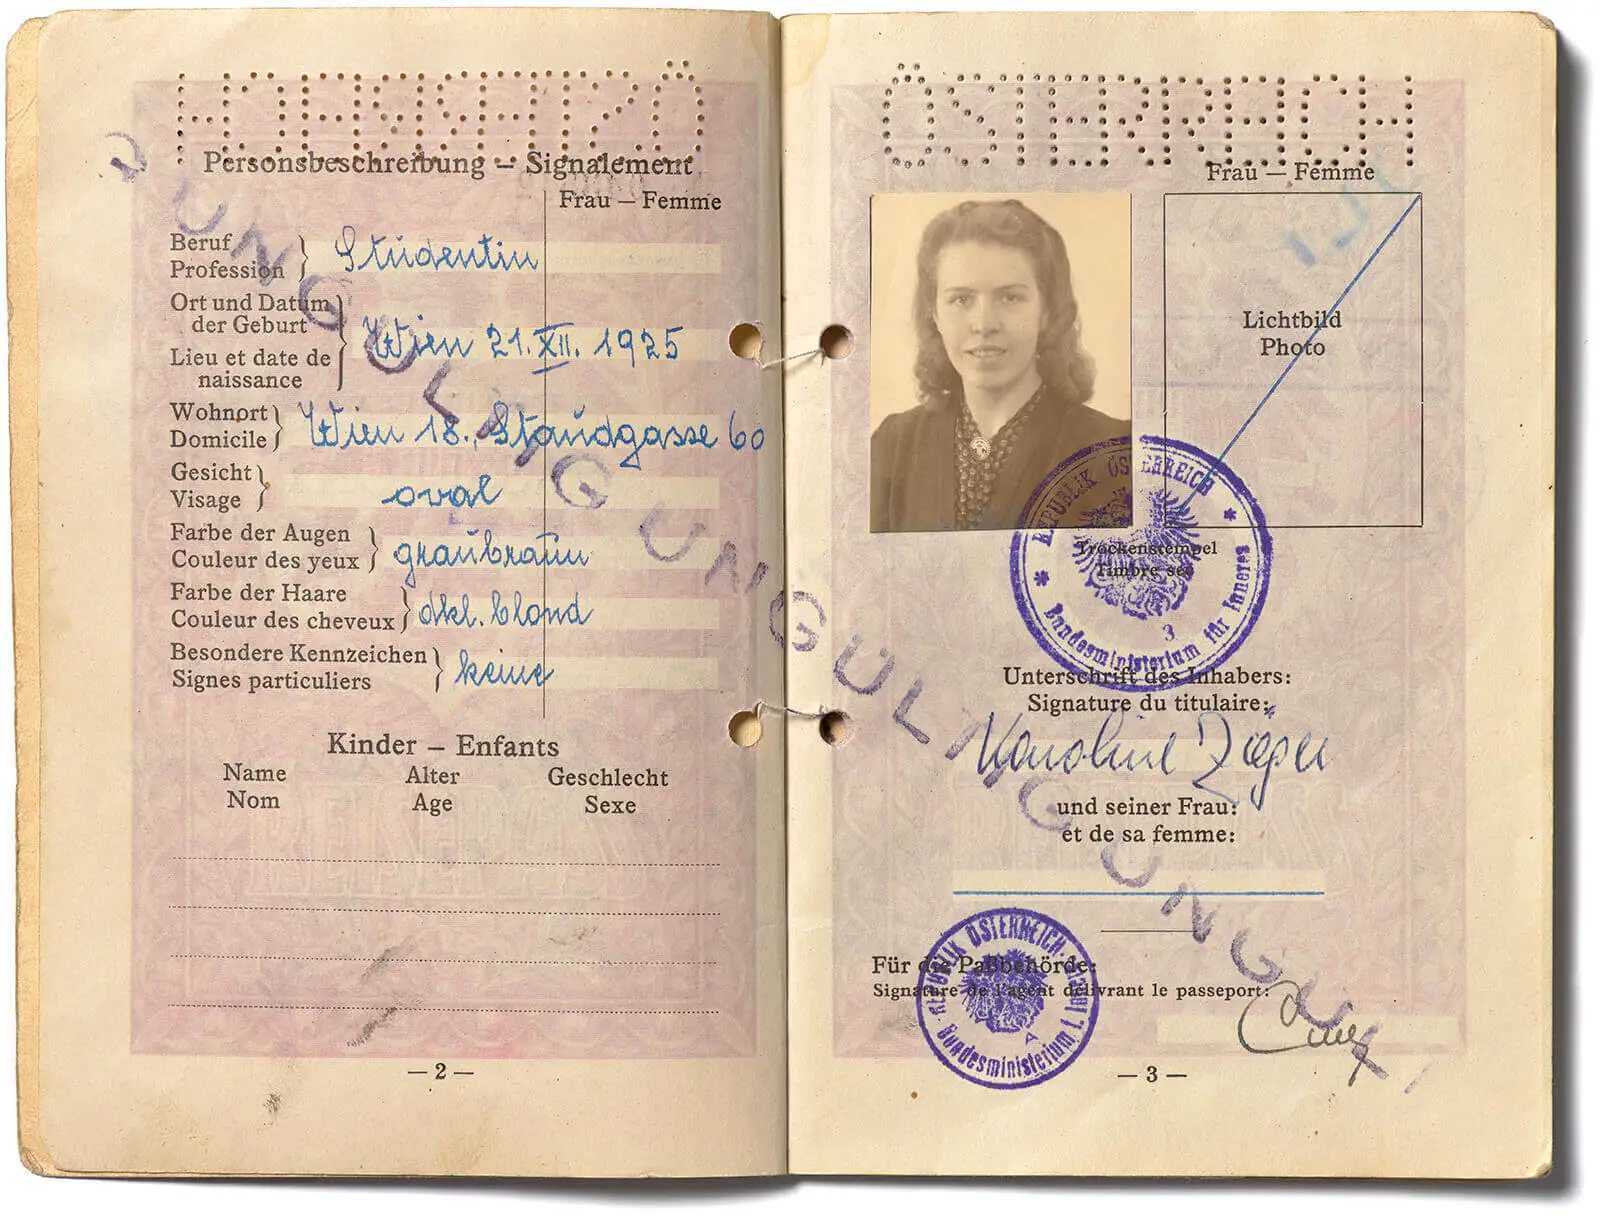 ÖSTERREICH
Personsbeschreibung – Signalement
Frau — Femme
Beruf
Profession
Studentin
Ort und Datum
der Geburt
Lieu et date de
naissance
Wien 21. XII. 1925
Wohnort
Domicile
Wien 18., Staudgasse 60
Gesicht
Visage
oval
Farbe der Augen
Couleur des yeux
graubraun
Farbe der Haare
Couleur des cheveux
dkl. blond
Besondere Kennzeichen
Signes particuliers
keine
Kinder – Enfants
Name Alter Geschlecht
Nom Age Sexe
REISEPASS
— 2 —
UNGÜLTIG UNGÜLTIG UNGÜLT
ÖSTERREICH
Frau — Femme
Lichtbild
Photo
REPUBLIK ÖSTERREICH
Trockenstempel
Timbre sec
3
Bundesministerium für Inneres
Unterschrift des Inhabers:
Signature du titulaire:
Karoline
und seiner Frau:
et de sa femme:
REPUBLIK ÖSTERREICH
Für die Paßbehörde:
Signature de l'agent délivrant le passeport:
A
Bundesministerium f. Inneres
— 3 —